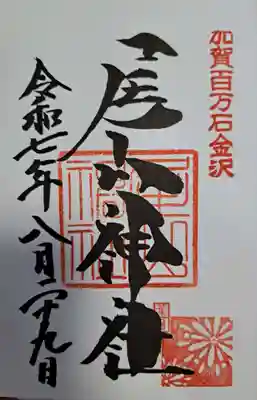 加賀百万石金沢
尾山神社
令和七年八月二十九日